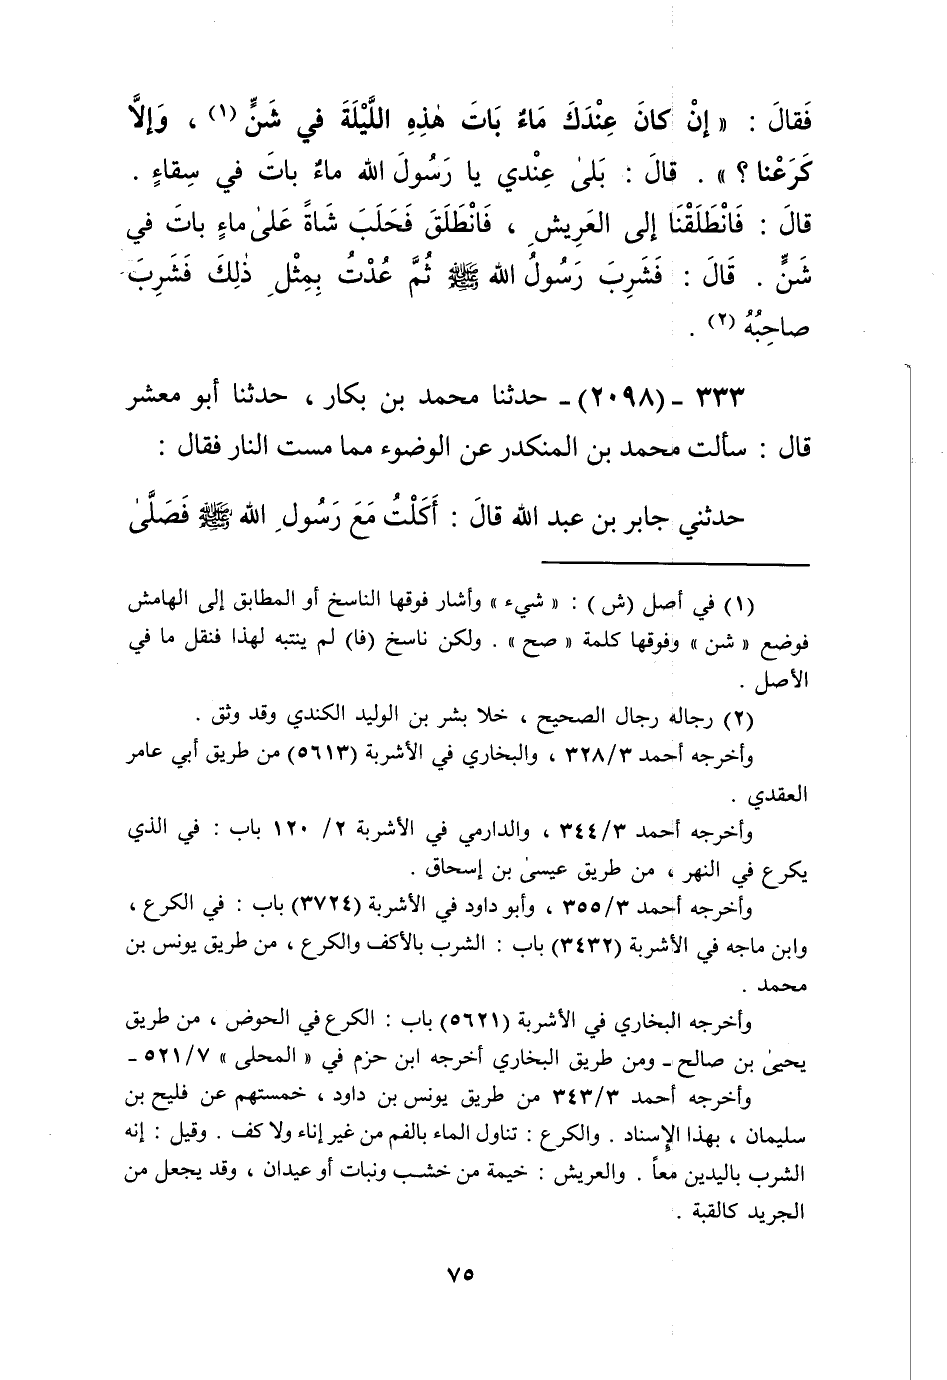 فَقالَ : « إِنْ كانَ عِنْدَكَ مَاءٌ بَاتَ هٰذِهِ اللَّيْلَةَ في شَنٍّ (١) ، وَإلاَّ
كَرَعْنا ؟ » . قالَ : بَلىٰ عِنْدي يا رَسُولَ الله ماءٌ باتَ في سِقاءٍ .
قالَ : فَانْطَلَقْنَا إلى العَرِيشِ ، فَانْطَلَقَ فَحَلَبَ شَاةً عَلىٰ ماءٍ باتَ في
شَنٍّ . قَالَ : فَشَرِبَ رَسُولُ الله ﷺ ثُمَّ عُدْتُ بِمِثْلِ ذٰلِكَ فَشَرِبَ
صاحِبُهُ (٢) .
٣٣٣ - (٢٠٩٨) - حدثنا محمد بن بكار ، حدثنا أبو معشر
قال : سألت محمد بن المنكدر عن الوضوء مما مست النار فقال :
حدثني جابر بن عبد الله قالَ : أَكَلْتُ مَعَ رَسُولِ الله ﷺ فَصَلَّىٰ
(١) في أصل (ش) : « شيء » وأشار فوقها الناسخ أو المطابق إلى الهامش
فوضع « شن » وفوقها كلمة « صح » . ولكن ناسخ (فا) لم ينتبه لهذا فنقل ما في
الأصل .
(٢) رجاله رجال الصحيح ، خلا بشر بن الوليد الكندي وقد وثق .
وأخرجه أحمد ٣٢٨/٣ ، والبخاري في الأشربة (٥٦١٣) من طريق أبي عامر
العقدي .
وأخرجه أحمد ٣٤٤/٣ ، والدارمي في الأشربة ٢/ ١٢٠ باب : في الذي
يكرع في النهر ، من طريق عيسىٰ بن إسحاق .
وأخرجه أحمد ٣٥٥/٣ ، وأبو داود في الأشربة (٣٧٢٤) باب : في الكرع ،
وابن ماجه في الأشربة (٣٤٣٢) باب : الشرب بالأكف والكرع ، من طريق يونس بن
محمد .
وأخرجه البخاري في الأشربة (٥٦٢١) باب : الكرع في الحوض ، من طريق
يحيىٰ بن صالح - ومن طريق البخاري أخرجه ابن حزم في « المحلى » ٥٢١/٧ -
وأخرجه أحمد ٣٤٣/٣ من طريق يونس بن داود ، خمستهم عن فليح بن
سليمان ، بهذا الإسناد . والكرع : تناول الماء بالفم من غير إناء ولا كف . وقيل : إنه
الشرب باليدين معاً . والعريش : خيمة من خشب ونبات أو عيدان ، وقد يجعل من
الجريد كالقبة .
٧٥